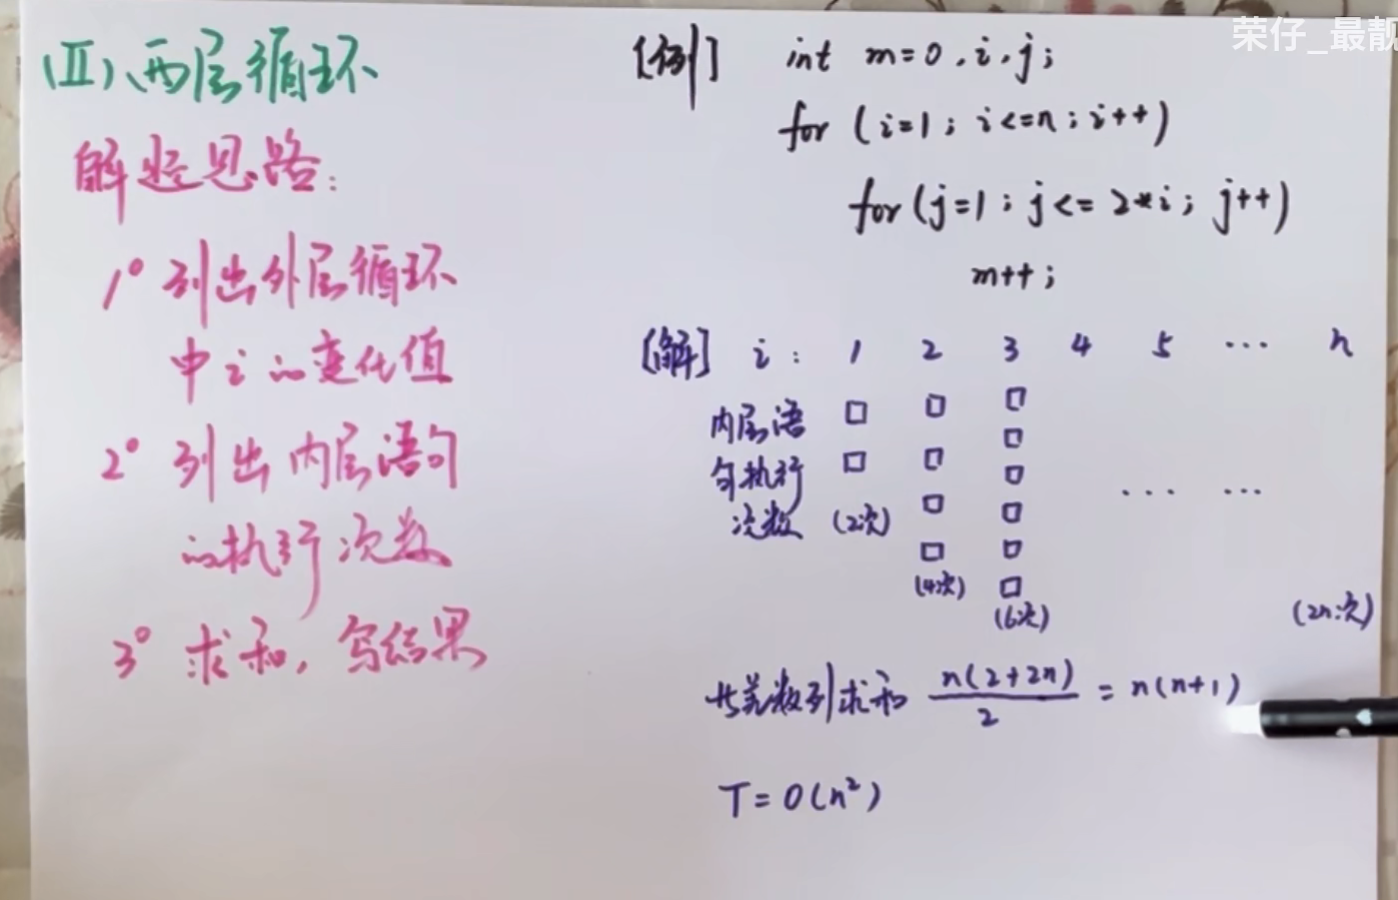 荣仔_最靓
(Ⅱ)、两层循环
解题思路：
1° 列出外层循环
中 i 的变化值
2° 列出内层语句
的执行次数
3° 求和，写结果
[例] int m=0,i,j;
for (i=1; i<=n; i++)
for (j=1; j<=2*i; j++)
m++;
[解] i: 1 2 3 4 5 ... n
内层语
句执行 ... ...
次数 (2次)
(4次)
(6次) (2n次)
等差数列求和 n(2+2n)/2 = n(n+1)
T=O(n²)